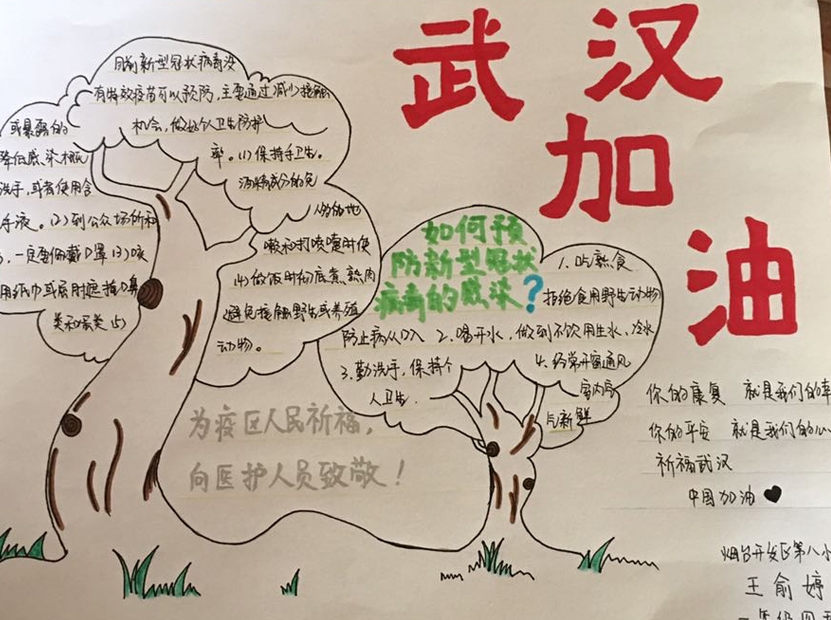 武汉
加
油
目前新型冠状病毒没
有特效疫苗可以预防,主要通过减少接触
或暴露的
机会,做好个人卫生防护
降低感染概
率。(1)保持手卫生。
洗手,或者使用含
酒精成分的免
手液。(2)到公众场所和
人多的地
一定要佩戴口罩(3)咳
嗽和打喷嚏时使
用纸巾或屈肘遮掩口鼻
(4)做饭时彻底煮熟肉
类和蛋类(5)
避免接触野生或养殖
动物。
如何预
防新型冠状
病毒的感染?
1.吃熟食
拒绝食用野生动物
防止病从口入 2.喝开水,做到不饮用生水、冷水
3.勤洗手,保持个
人卫生.
4.经常开窗通风
室内空
气新鲜
为疫区人民祈福,
向医护人员致敬!
你的康复 就是我们的幸
你的平安 就是我们的心
祈福武汉
中国加油
烟台开发区第八小
王俞婷